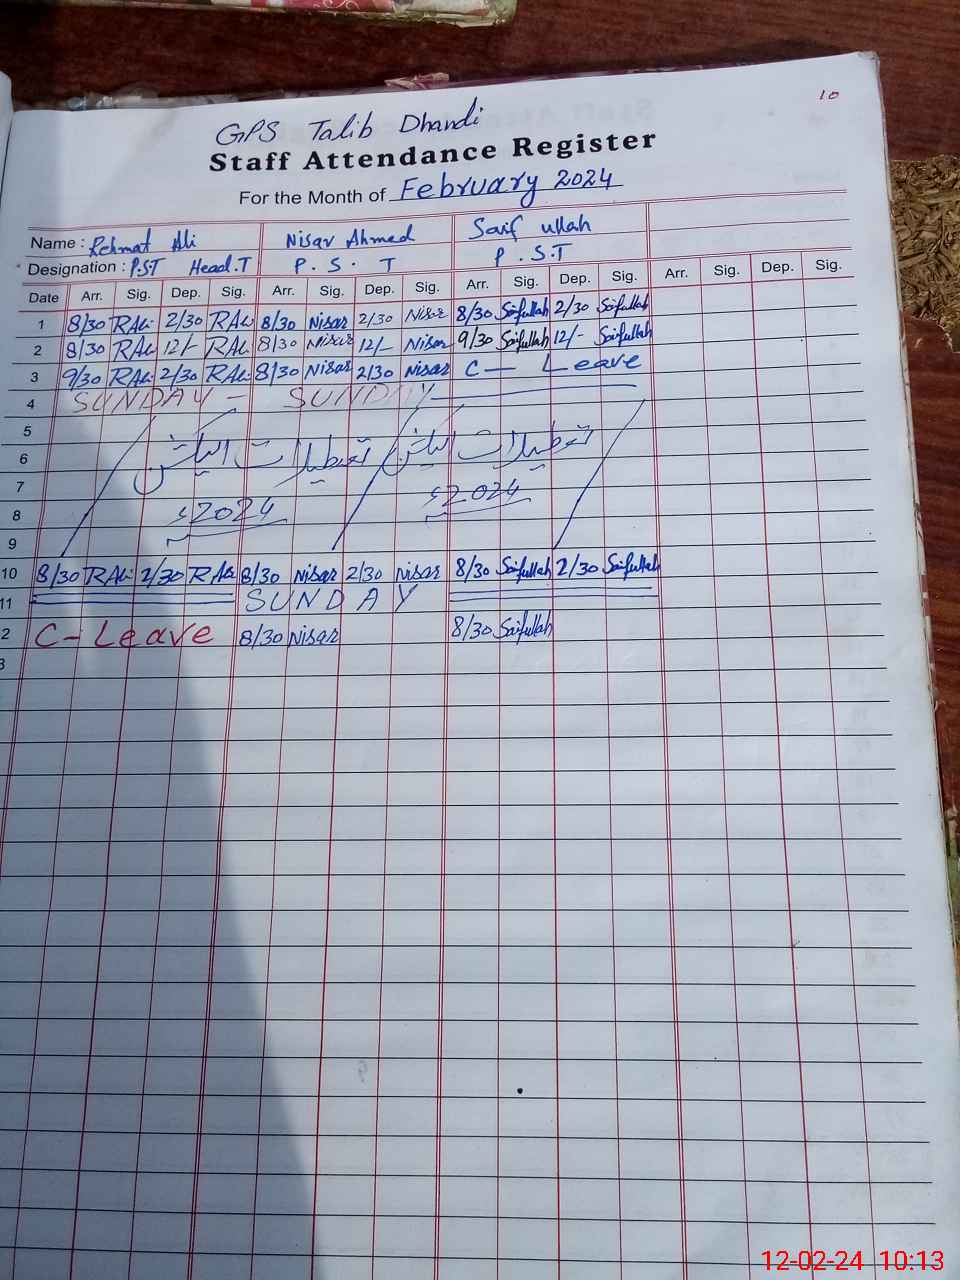 10
GPS Talib Dhandi
Staff Attendance Register
For the Month of February 2024
Name : Rehmat Ali Nisar Ahmed Saif ullah
Designation : P.S.T Head.T P. S. T P. S.T
Date Arr. Sig. Dep. Sig. Arr. Sig. Dep. Sig. Arr. Sig. Dep. Sig. Arr. Sig. Dep. Sig.
1 8/30 RAli 2/30 RAli 8/30 Nisar 2/30 Nisar 8/30 Saifullah 2/30 Saifullah
2 8/30 RAli 12/- RAli 8/30 Nisar 12/- Nisar 9/30 Saifullah 12/- Saifullah
3 9/30 RAli 2/30 RAli 8/30 Nisar 2/30 Nisar C- Leave
4 SUNDAY - SUNDAY
5
6 تعطیلات الیکشن تعطیلات الیکشن
7
8 2024ء 2024ء
9
10 8/30 RAli 2/30 RAli 8/30 Nisar 2/30 Nisar 8/30 Saifullah 2/30 Saifullah
11 SUNDAY
2 C- Leave 8/30 Nisar 8/30 Saifullah
3
12-02-24 10:13